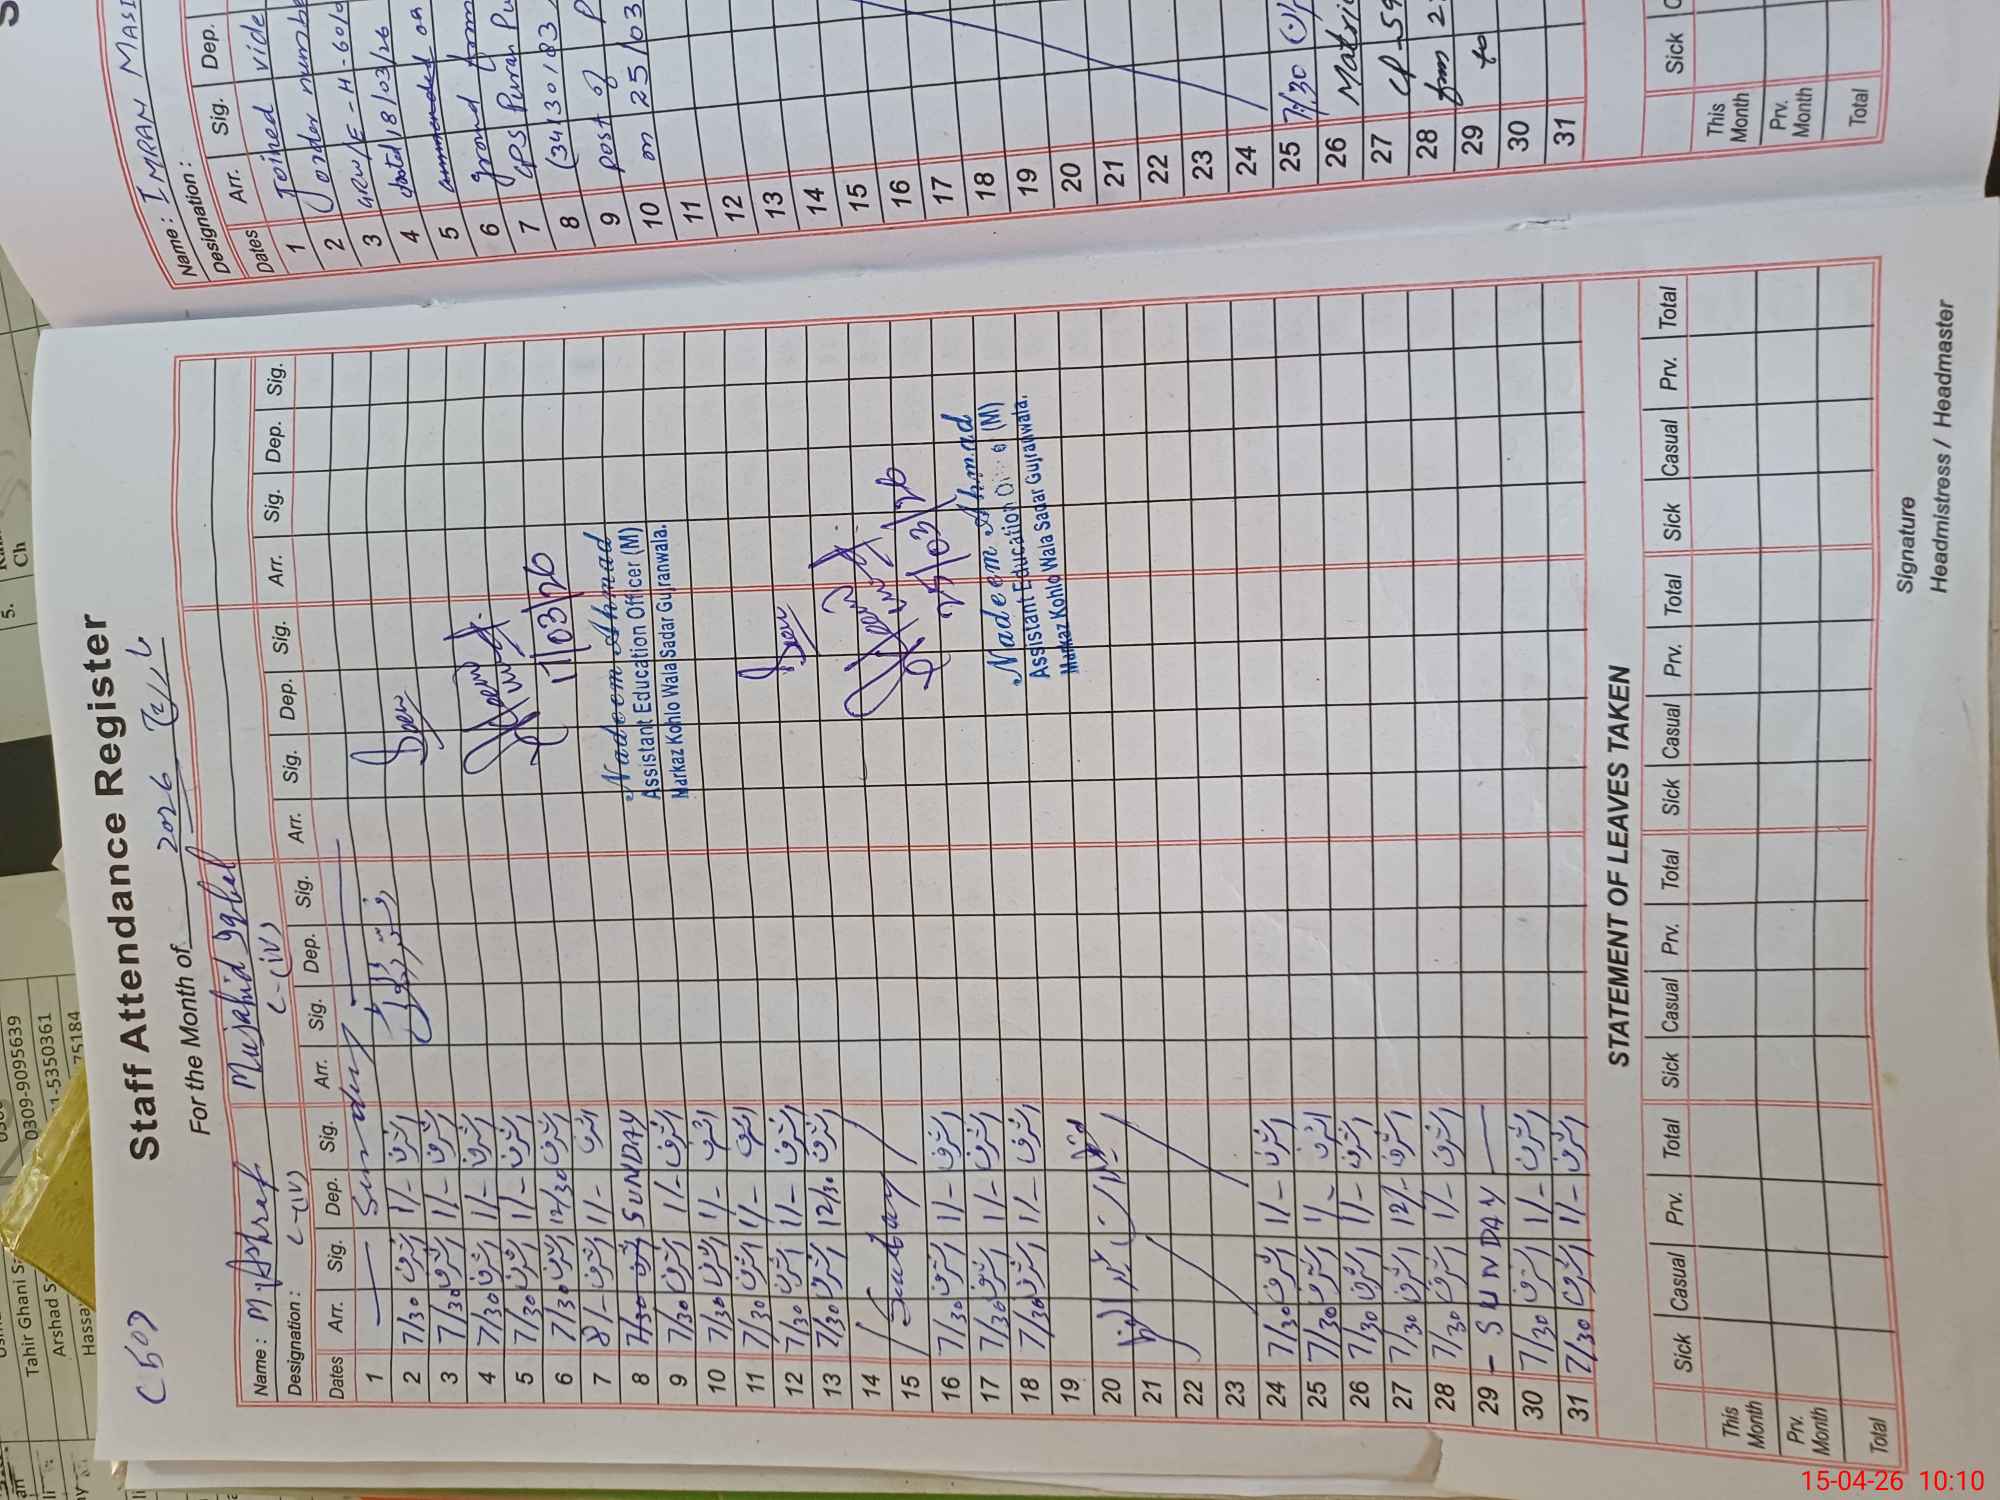 Staff Attendance Register
For the Month of 2026 مارچ
Name : M. Ashraf Mujahid Iqbal
Designation : C-(IV) C-(IV)
Dates Arr. Sig. Dep. Sig. Arr. Sig. Dep. Sig. Arr. Sig. Dep. Sig. Arr. Sig. Dep. Sig.
1 — Sunday —
2 7/30 اشرف 1/- اشرف
3 7/30 اشرف 1/- اشرف
4 7/30 اشرف 1/- اشرف
5 7/30 اشرف 1/- اشرف
6 7/30 اشرف 12/30 اشرف
7 8/- اشرف 1/- اشرف
8 7/30 اشرف SUNDAY
9 7/30 اشرف 1/- اشرف
10 7/30 اشرف 1/- اشرف
11 7/30 اشرف 1/- اشرف
12 7/30 اشرف 1/- اشرف
13 7/30 اشرف 12/30 اشرف
14
15 Sunday
16 7/30 اشرف 1/- اشرف
17 7/30 اشرف 1/- اشرف
18 7/30 اشرف 1/- اشرف
19
20
21
22
23
24 7/30 اشرف 1/- اشرف
25 7/30 اشرف 1/- اشرف
26 7/30 اشرف 1/- اشرف
27 7/30 اشرف 12/- اشرف
28 7/30 اشرف 1/- اشرف
29 - SUNDAY —
30 7/30 اشرف 1/- اشرف
31 7/30 اشرف 1/- اشرف
Seen
17/03/26
Nadeem Ahmad
Assistant Education Officer (M)
Markaz Kohlo Wala Sadar Gujranwala.
Seen
25/03/26
Nadeem Ahmad
Assistant Education Officer (M)
Markaz Kohlo Wala Sadar Gujranwala.
STATEMENT OF LEAVES TAKEN
Sick Casual Prv. Total Sick Casual Prv. Total Sick Casual Prv. Total Sick Casual Prv. Total
This Month
Prv. Month
Total
Signature
Headmistress / Headmaster
Name : IMRAN MASI
Designation :
Dates Arr. Sig. Dep.
1 Joined vide
2 order numbe
3
4 dated 18/03/26
5 on
6 ground from
7 GPS Puran Pu
8 (34130183
9 post of P
10 on 25/03
11
12
13
14
15
16
17
18
19
20
21
22
23
24
25 7/30
26 Matric
27
28 from 2
29 to
30
31
Sick
This Month
Prv. Month
Total
5.
Ch
0309-9095639
Tahir Ghani S
1-5350361
Arshad S
75184
Hassa
15-04-26 10:10